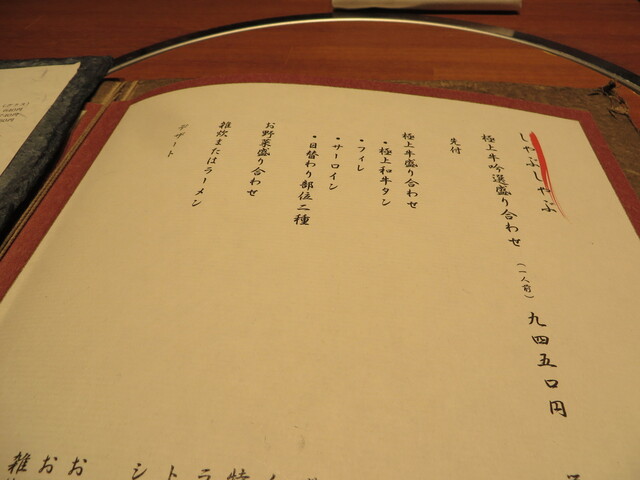 しゃぶしゃぶ
極上牛吟選盛り合わせ（一人前）九四五〇円
先付
極上牛盛り合わせ
・極上和牛タン
・フィレ
・サーロイン
・日替わり部位二種
お野菜盛り合わせ
雑炊またはラーメン
デザート